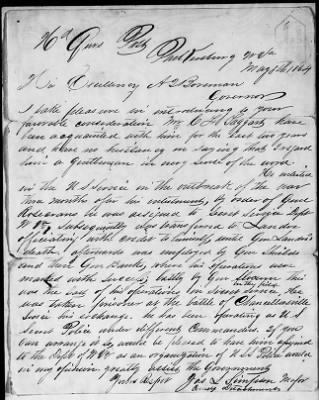 Hd Qurs Post
Phillipsburg W Va
May 24th 1864
His Excellency A I Boreman
Governor
I take pleasure in introducing to your
favorable consideration Mr C H Taggart
have been acquainted with him for the last two years
and have no hesitancy in saying that I regard
him a Gentleman in every sense of the word
He enlisted
in the U S Service in the outbreak of the war
two months after his enlistment, by order of Genl
Rosecrans he was assigned to Secret Service Dept
W Va, Subsequently was transferred to Lander
operating with credit to himself until Gen Lander's
death, afterwards was employed by Gen Shields
and Genl Banks, where his operations were
marked with success, lastly by Gen Slocum this
in the field
was the last of his operations in Secret Service. He
was taken prisoner at the battle of Chancellorsville
Since his exchange. he has been operating as U S
Secret Police under different Commanders. If you
can arrange it so, would be pleased to have him assigned
to the Dept of W Va as an organization of U S Police would
in my opinion greatly assist the Government
Yours Respct
Jas L Simpson Major